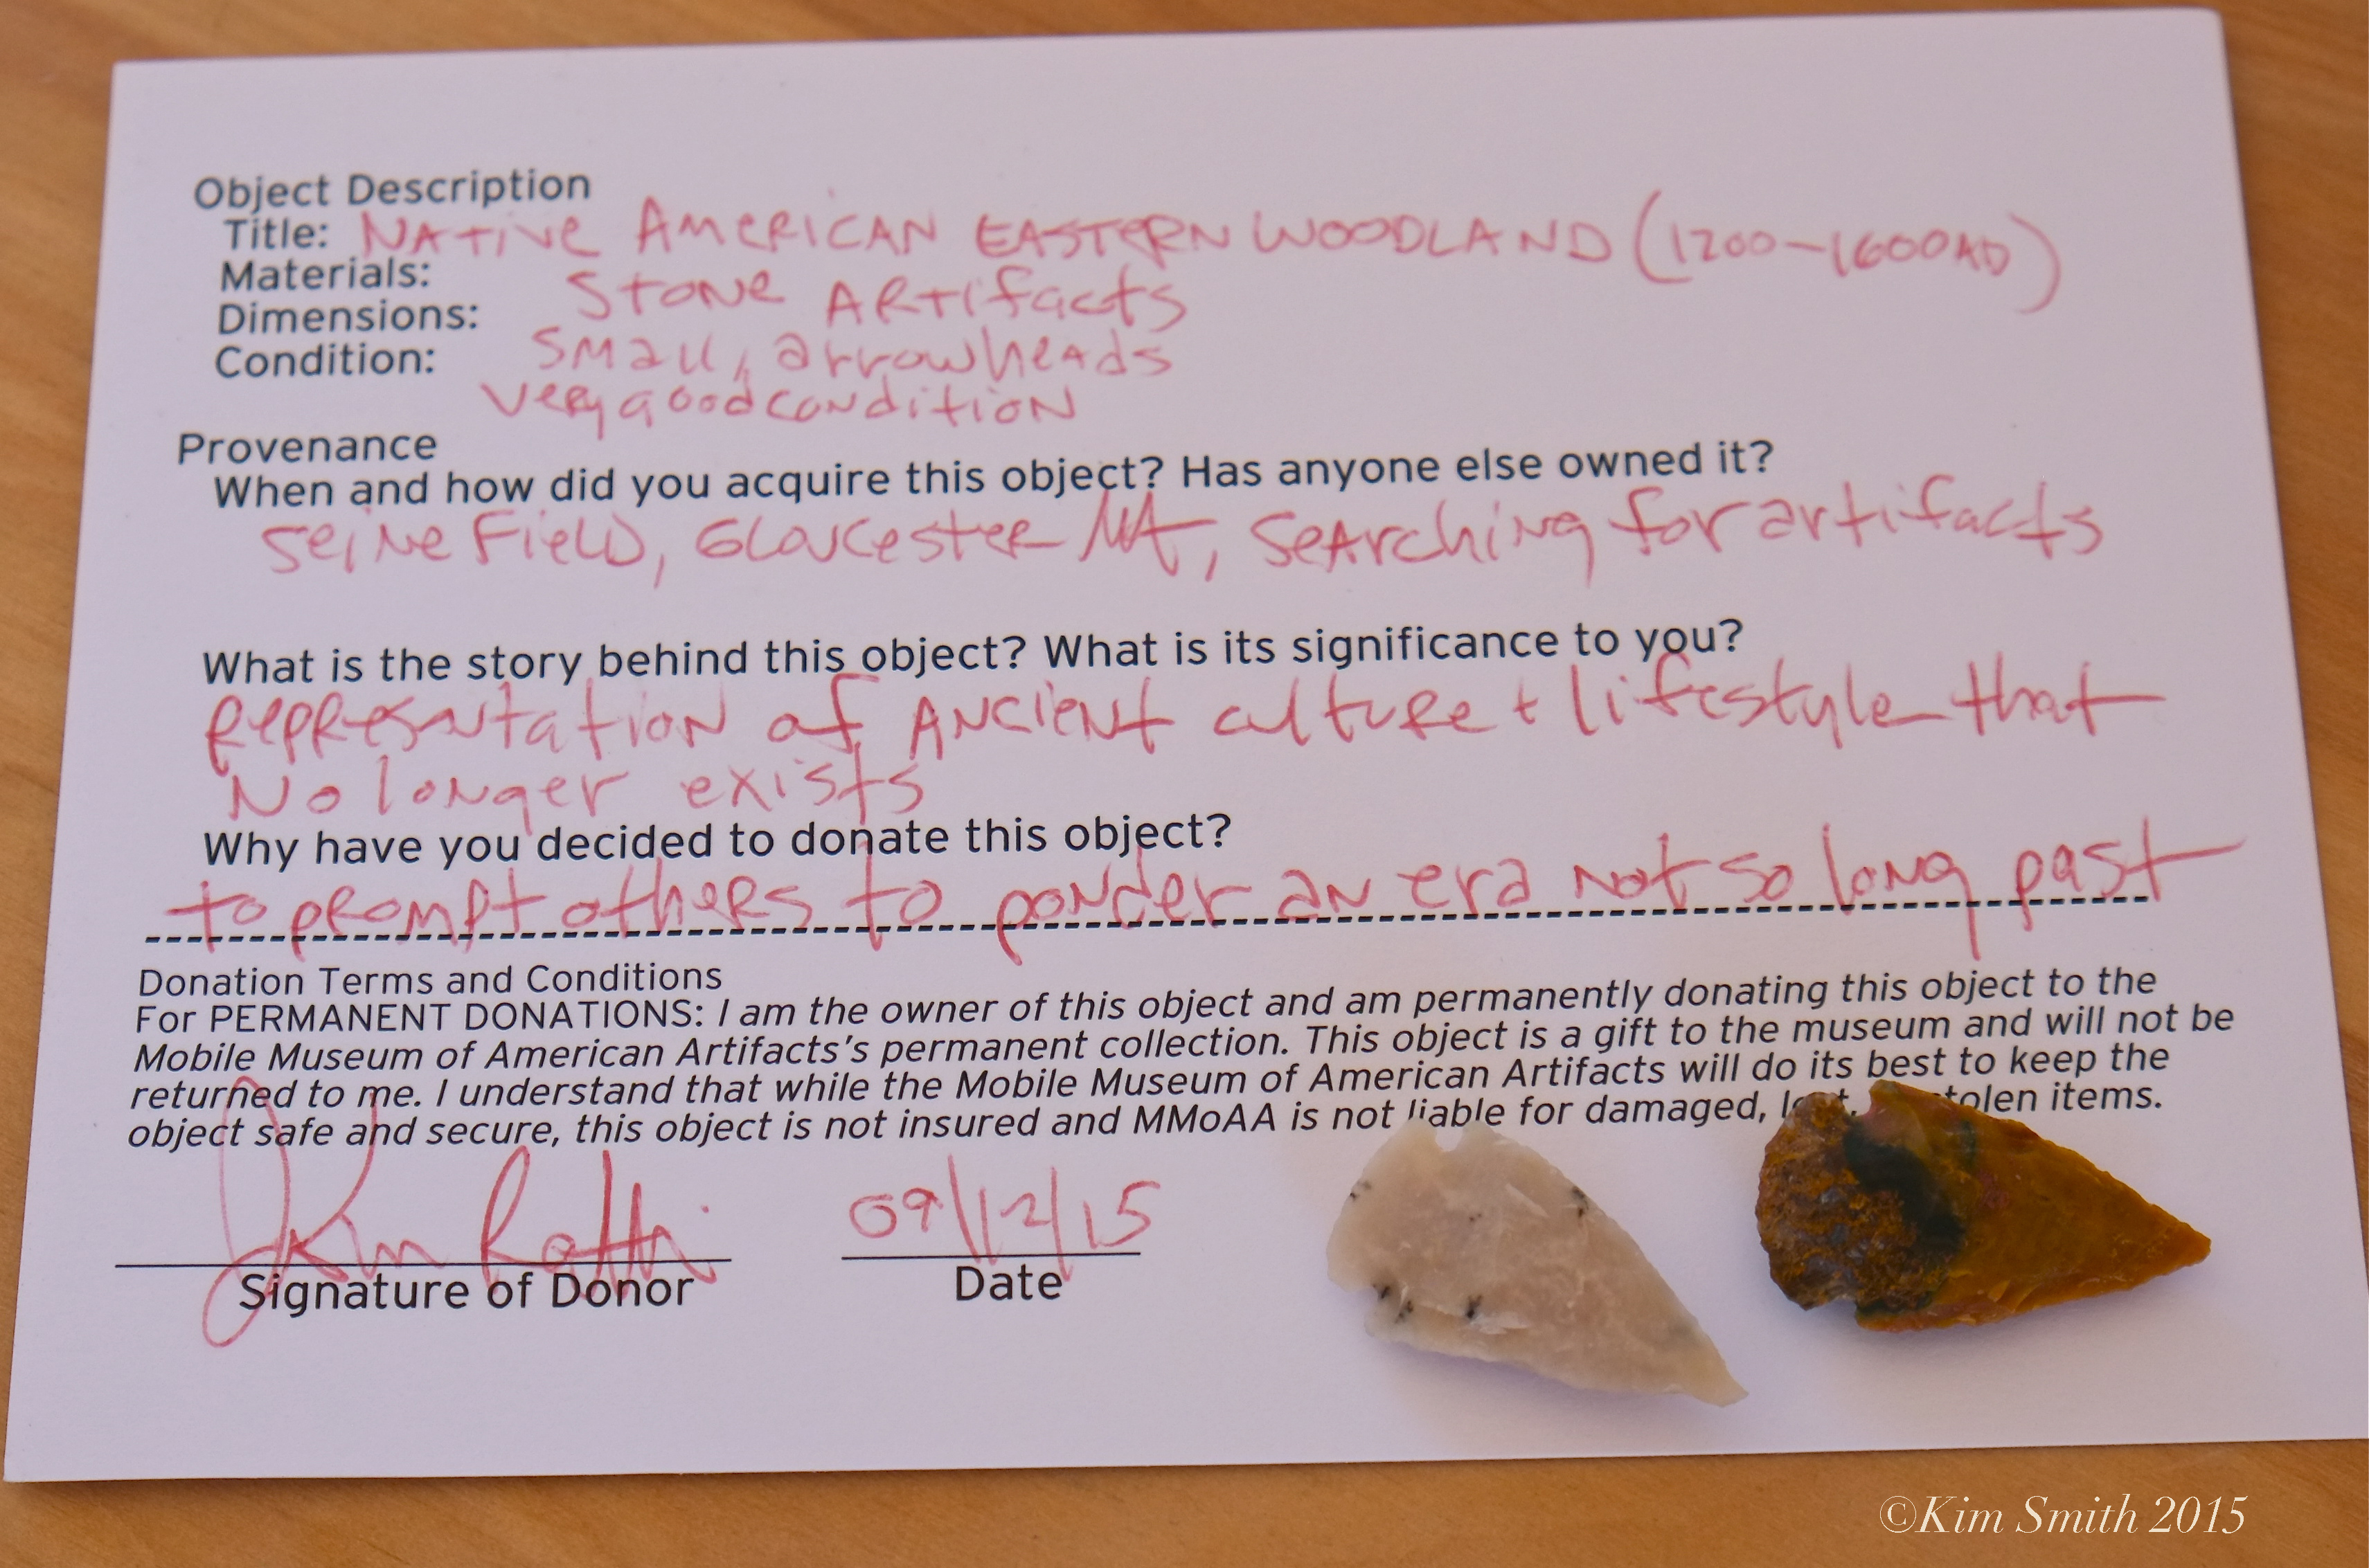 Object Description
Title: NATIVE AMERICAN EASTERN WOODLAND (1200-1600AD)
Materials: STONE ARTifacts
Dimensions: Small, arrowheads
Condition: very good condition
Provenance
When and how did you acquire this object? Has anyone else owned it?
Seine Field, Gloucester MA, Searching for artifacts
What is the story behind this object? What is its significance to you?
Representation of Ancient culture + lifestyle that
No longer exists
Why have you decided to donate this object?
to prompt others to ponder an era not so long past
Donation Terms and Conditions
For PERMANENT DONATIONS: I am the owner of this object and am permanently donating this object to the
Mobile Museum of American Artifacts's permanent collection. This object is a gift to the museum and will not be
returned to me. I understand that while the Mobile Museum of American Artifacts will do its best to keep the
object safe and secure, this object is not insured and MMoAA is not liable for damaged, lost, stolen items.
09/12/15
Signature of Donor Date
©Kim Smith 2015